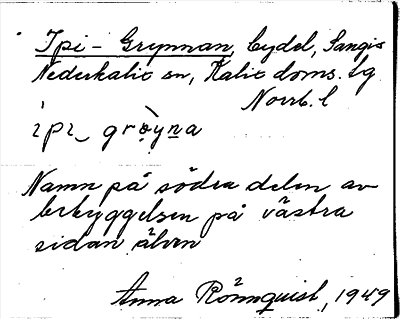 Ipi-Grynnan, bydel, Sangis
Nederkalix sn, Kalix doms. lg
Norrb. l
ipi grøyna
Namn på södra delen av
bebyggelsen på västra
sidan älven
Anna Rönnquist, 1949